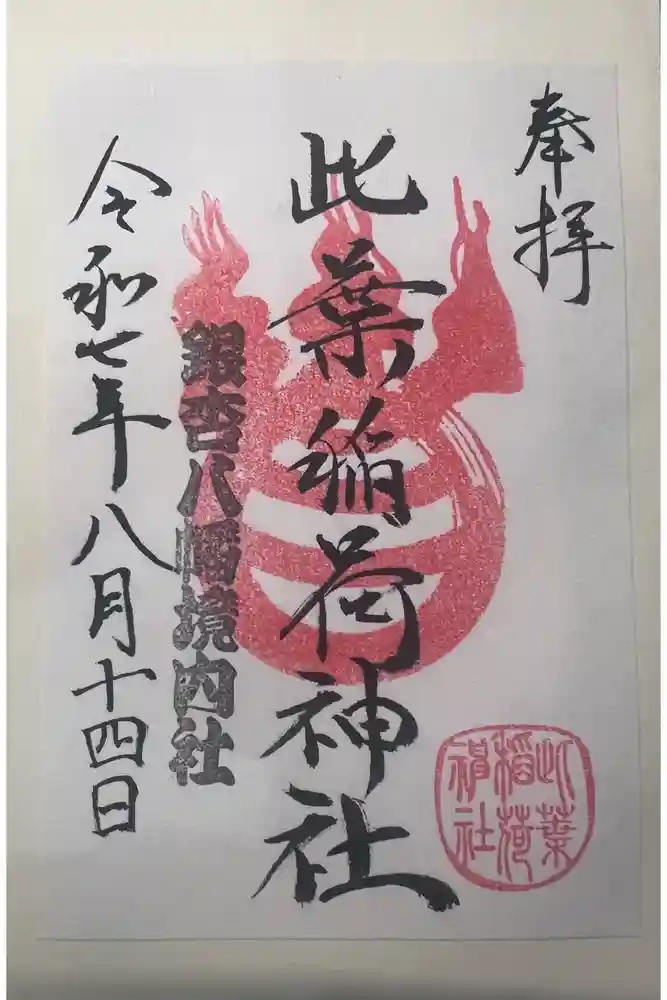 奉拝
此葉稲荷神社
銀杏八幡境内社
令和七年八月十四日
此葉
稲荷
神社